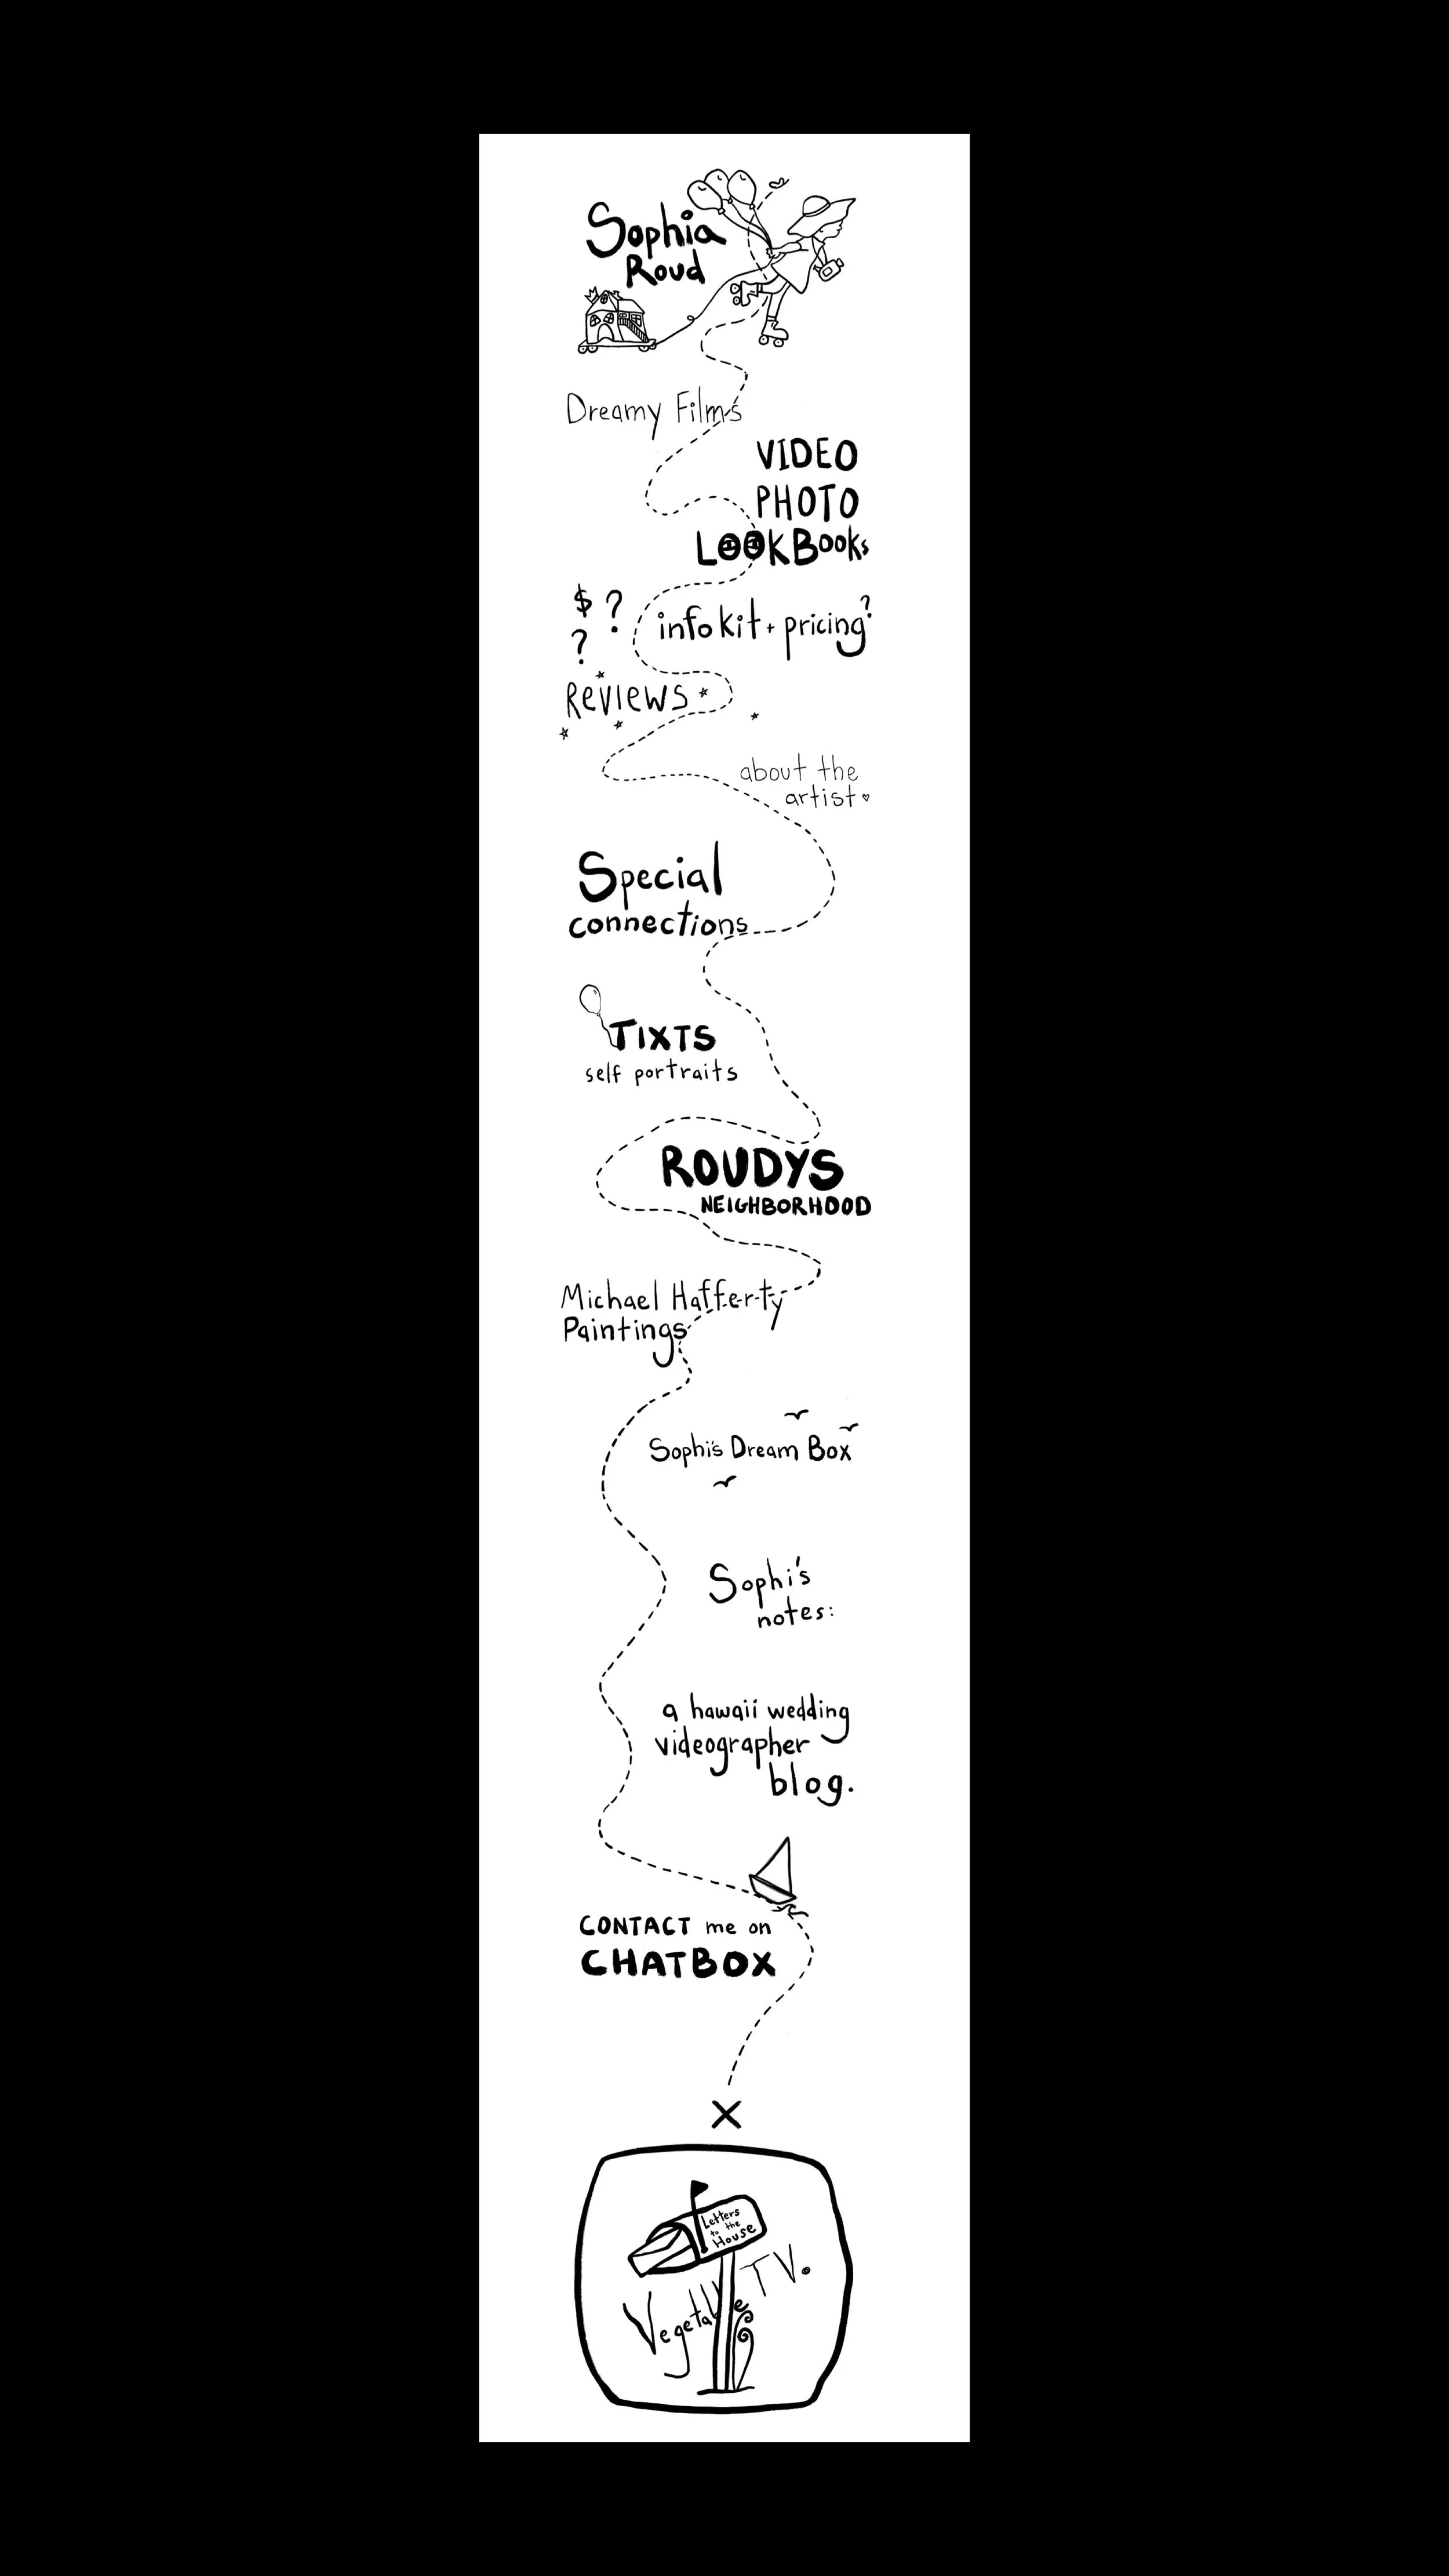 Sophia
Roud
Dreamy Films
VIDEO
PHOTO
LOOKBOOKs
$ ?
?
info kit + pricing?
Reviews
about the
artist
Special
connections
TIXTS
self portraits
ROUDYS
NEIGHBORHOOD
Michael Hafferty
Paintings
Sophi's Dream Box
Sophi's
notes:
a hawaii wedding
videographer
blog.
CONTACT me on
CHATBOX
X
Letters
to the
House
Vegetable TV.